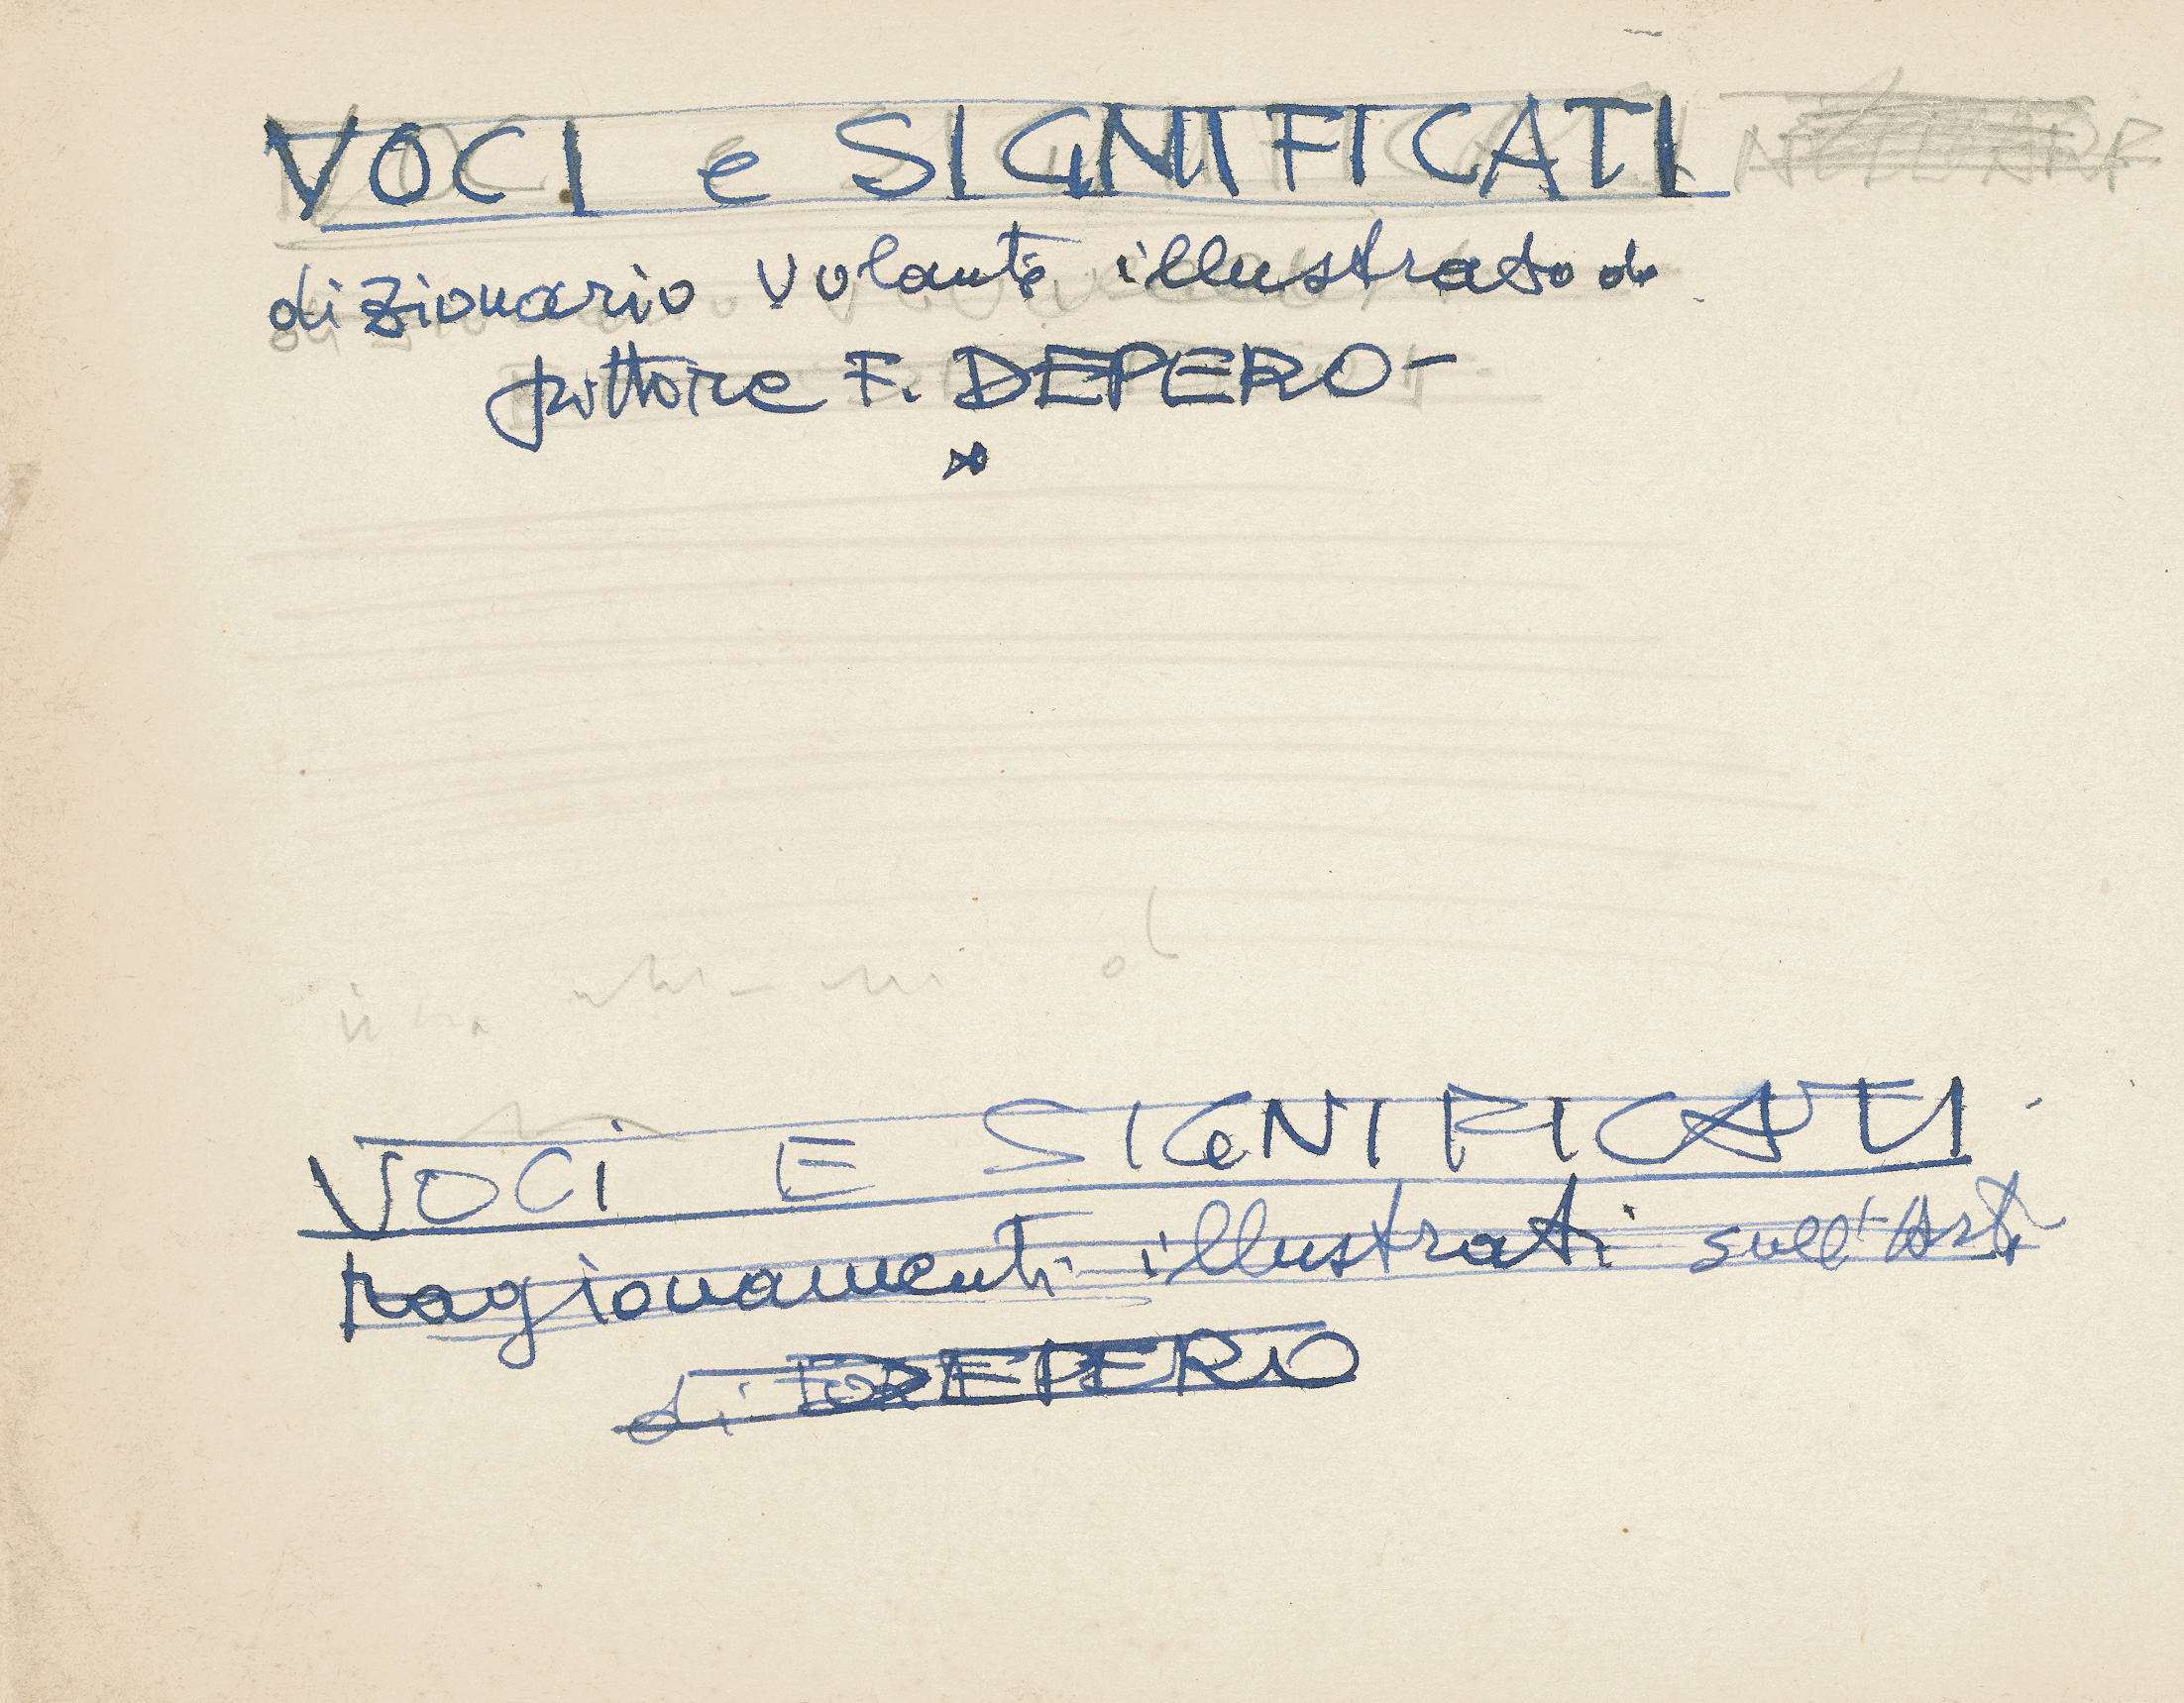 VOCI e SIGNIFICATI
dizionario volante illustrato da
pittore F. DEPERO-
VOCI E SIGNIFICATI.
ragionamenti illustrati sull'Arte
di DEPERO